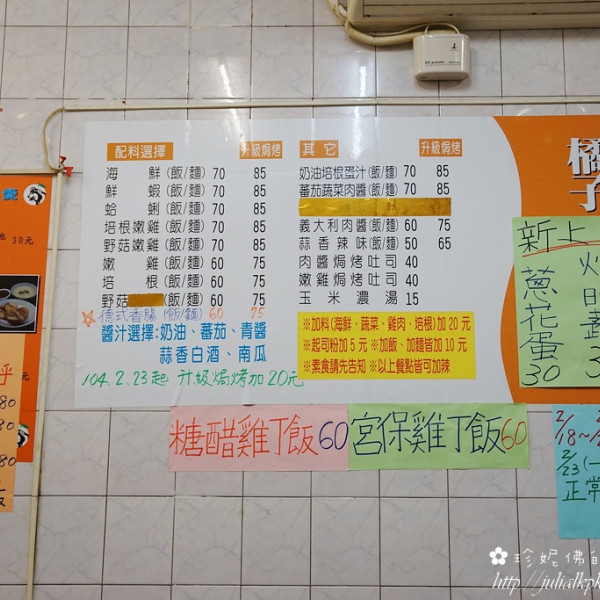 配料選擇 升級焗烤
海鮮(飯/麵) 70 85
鮮蝦(飯/麵) 70 85
蛤蜊(飯/麵) 70 85
培根嫩雞(飯/麵) 70 85
野菇嫩雞(飯/麵) 70 85
嫩雞(飯/麵) 60 75
培根(飯/麵) 60 75
野菇 60 75
德式香腸(飯/麵) 60 75
醬汁選擇:奶油、蕃茄、青醬
蒜香白酒、南瓜
104.2.23起 升級焗烤加20元
其它 升級焗烤
奶油培根蛋汁(飯/麵) 70 85
蕃茄蔬菜肉醬(飯/麵) 70 85
義大利肉醬(飯/麵) 60 75
蒜香辣味(飯/麵) 50 65
肉醬焗烤吐司 40
嫩雞焗烤吐司 40
玉米濃湯 15
※加料(海鮮、蔬菜、雞肉、培根)加20元
※起司粉加5元 ※加飯、加麵皆加10元
※素食請先告知 ※以上餐點皆可加辣
橘
子
新上
蔥花蛋
30
糖醋雞丁飯60
宮保雞丁飯60
2/18~
2/23(一
正常
30元
80
80
80
飯
✿珍妮佛的
http://julialkp